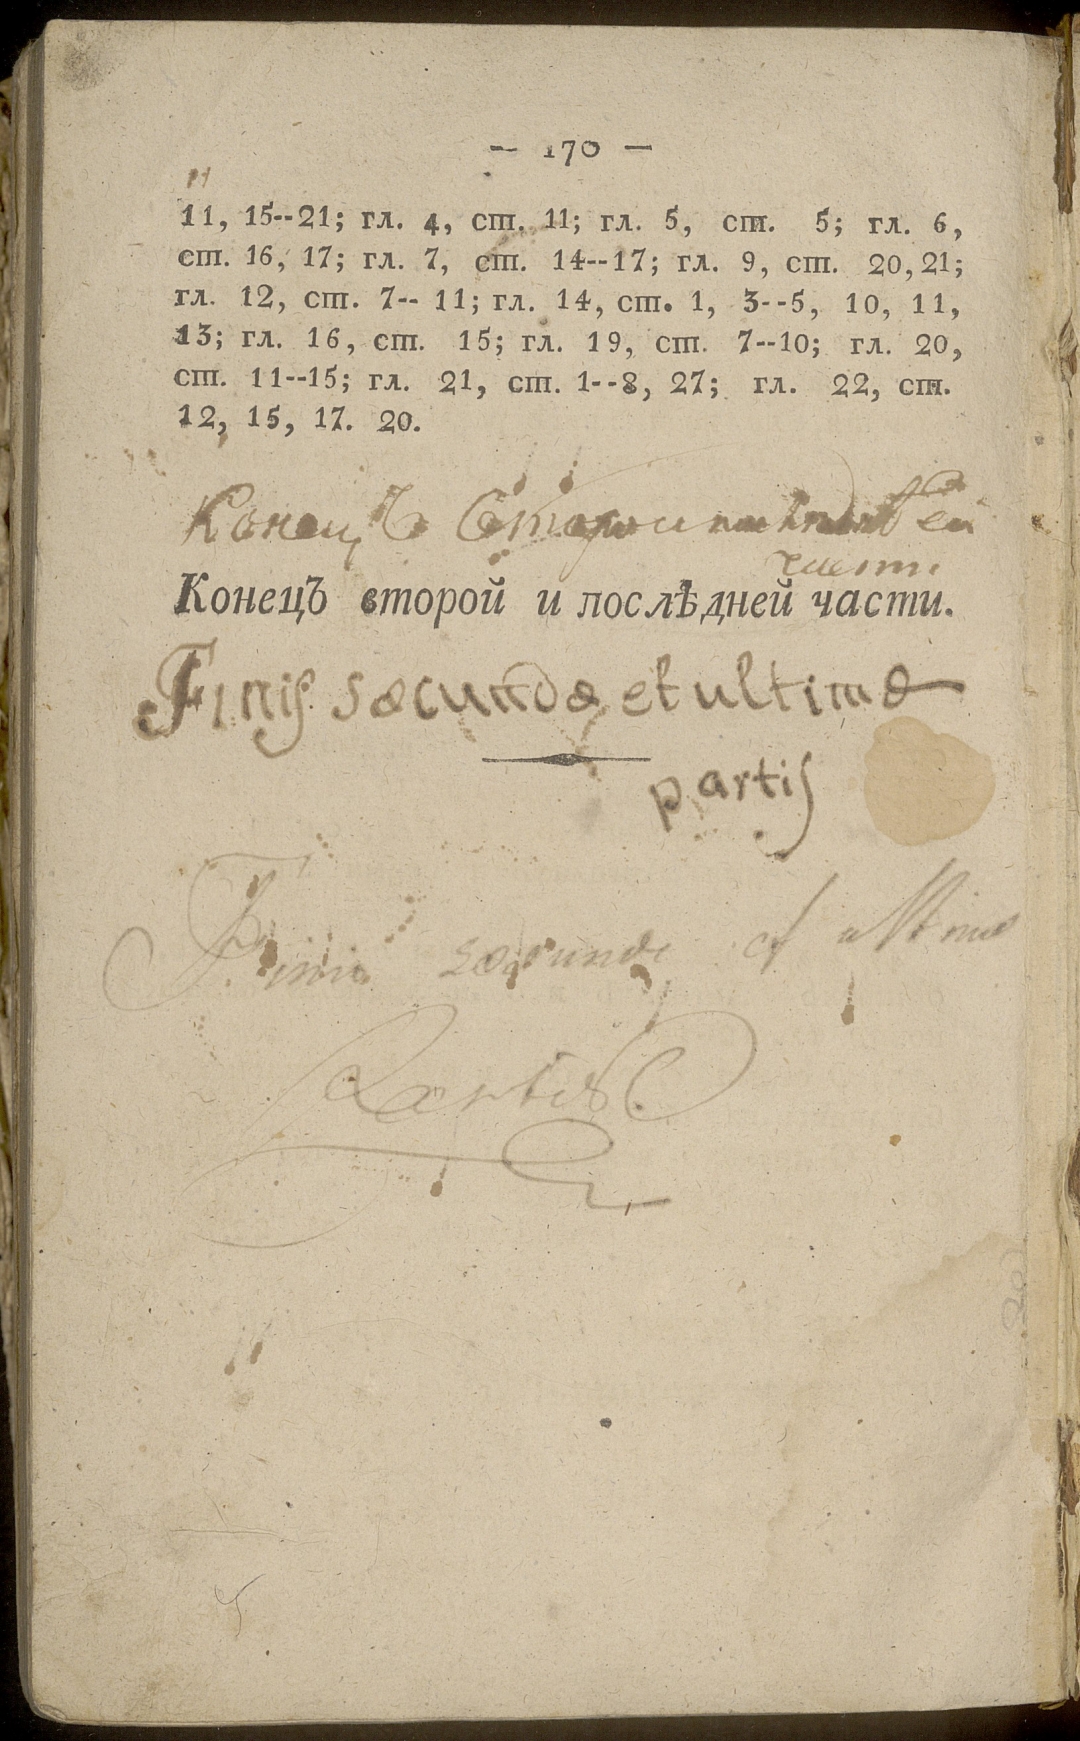 — 170 —
11, 15--21; гл. 4, ст. 11; гл. 5, ст. 5; гл. 6,
ст. 16, 17; гл. 7, ст. 14--17; гл. 9, ст. 20, 21;
гл. 12, ст. 7--11; гл. 14, ст. 1, 3--5, 10, 11,
13; гл. 16, ст. 15; гл. 19, ст. 7--10; гл. 20,
ст. 11--15; гл. 21, ст. 1--8, 27; гл. 22, ст.
12, 15, 17. 20.
Конецъ
части
Конецъ второй и послѣдней части.
Finis sæcundæ et ultimæ
partis
Finis secunde et ultimæ
Partis